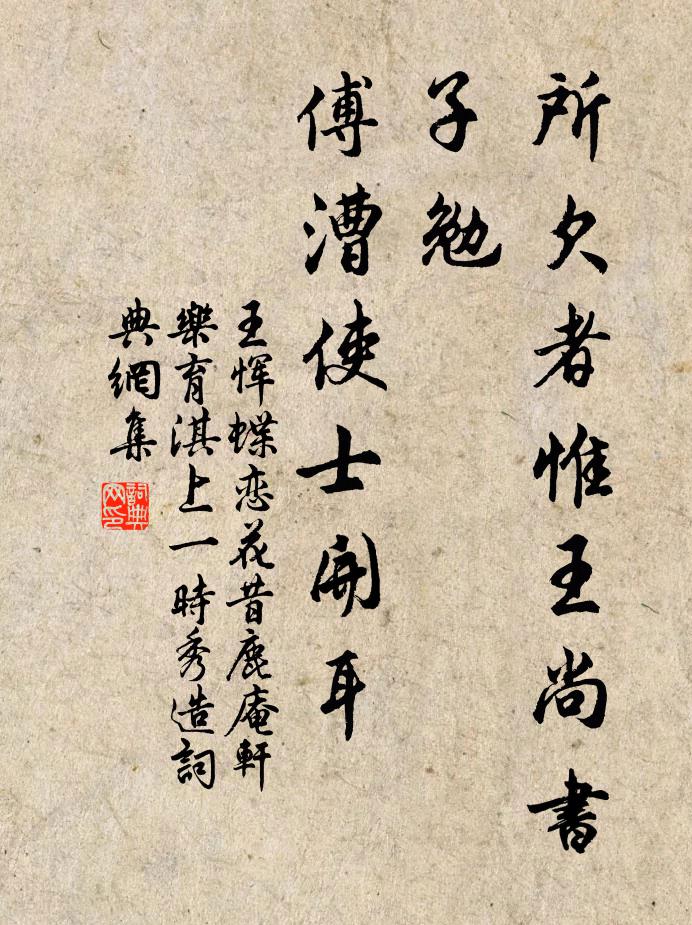 所欠者惟王尚書
子勉
傅漕使士開耳
王惲蝶恋花昔鹿庵軒
樂育淇上一時秀造詞
典網集
詞典
网印